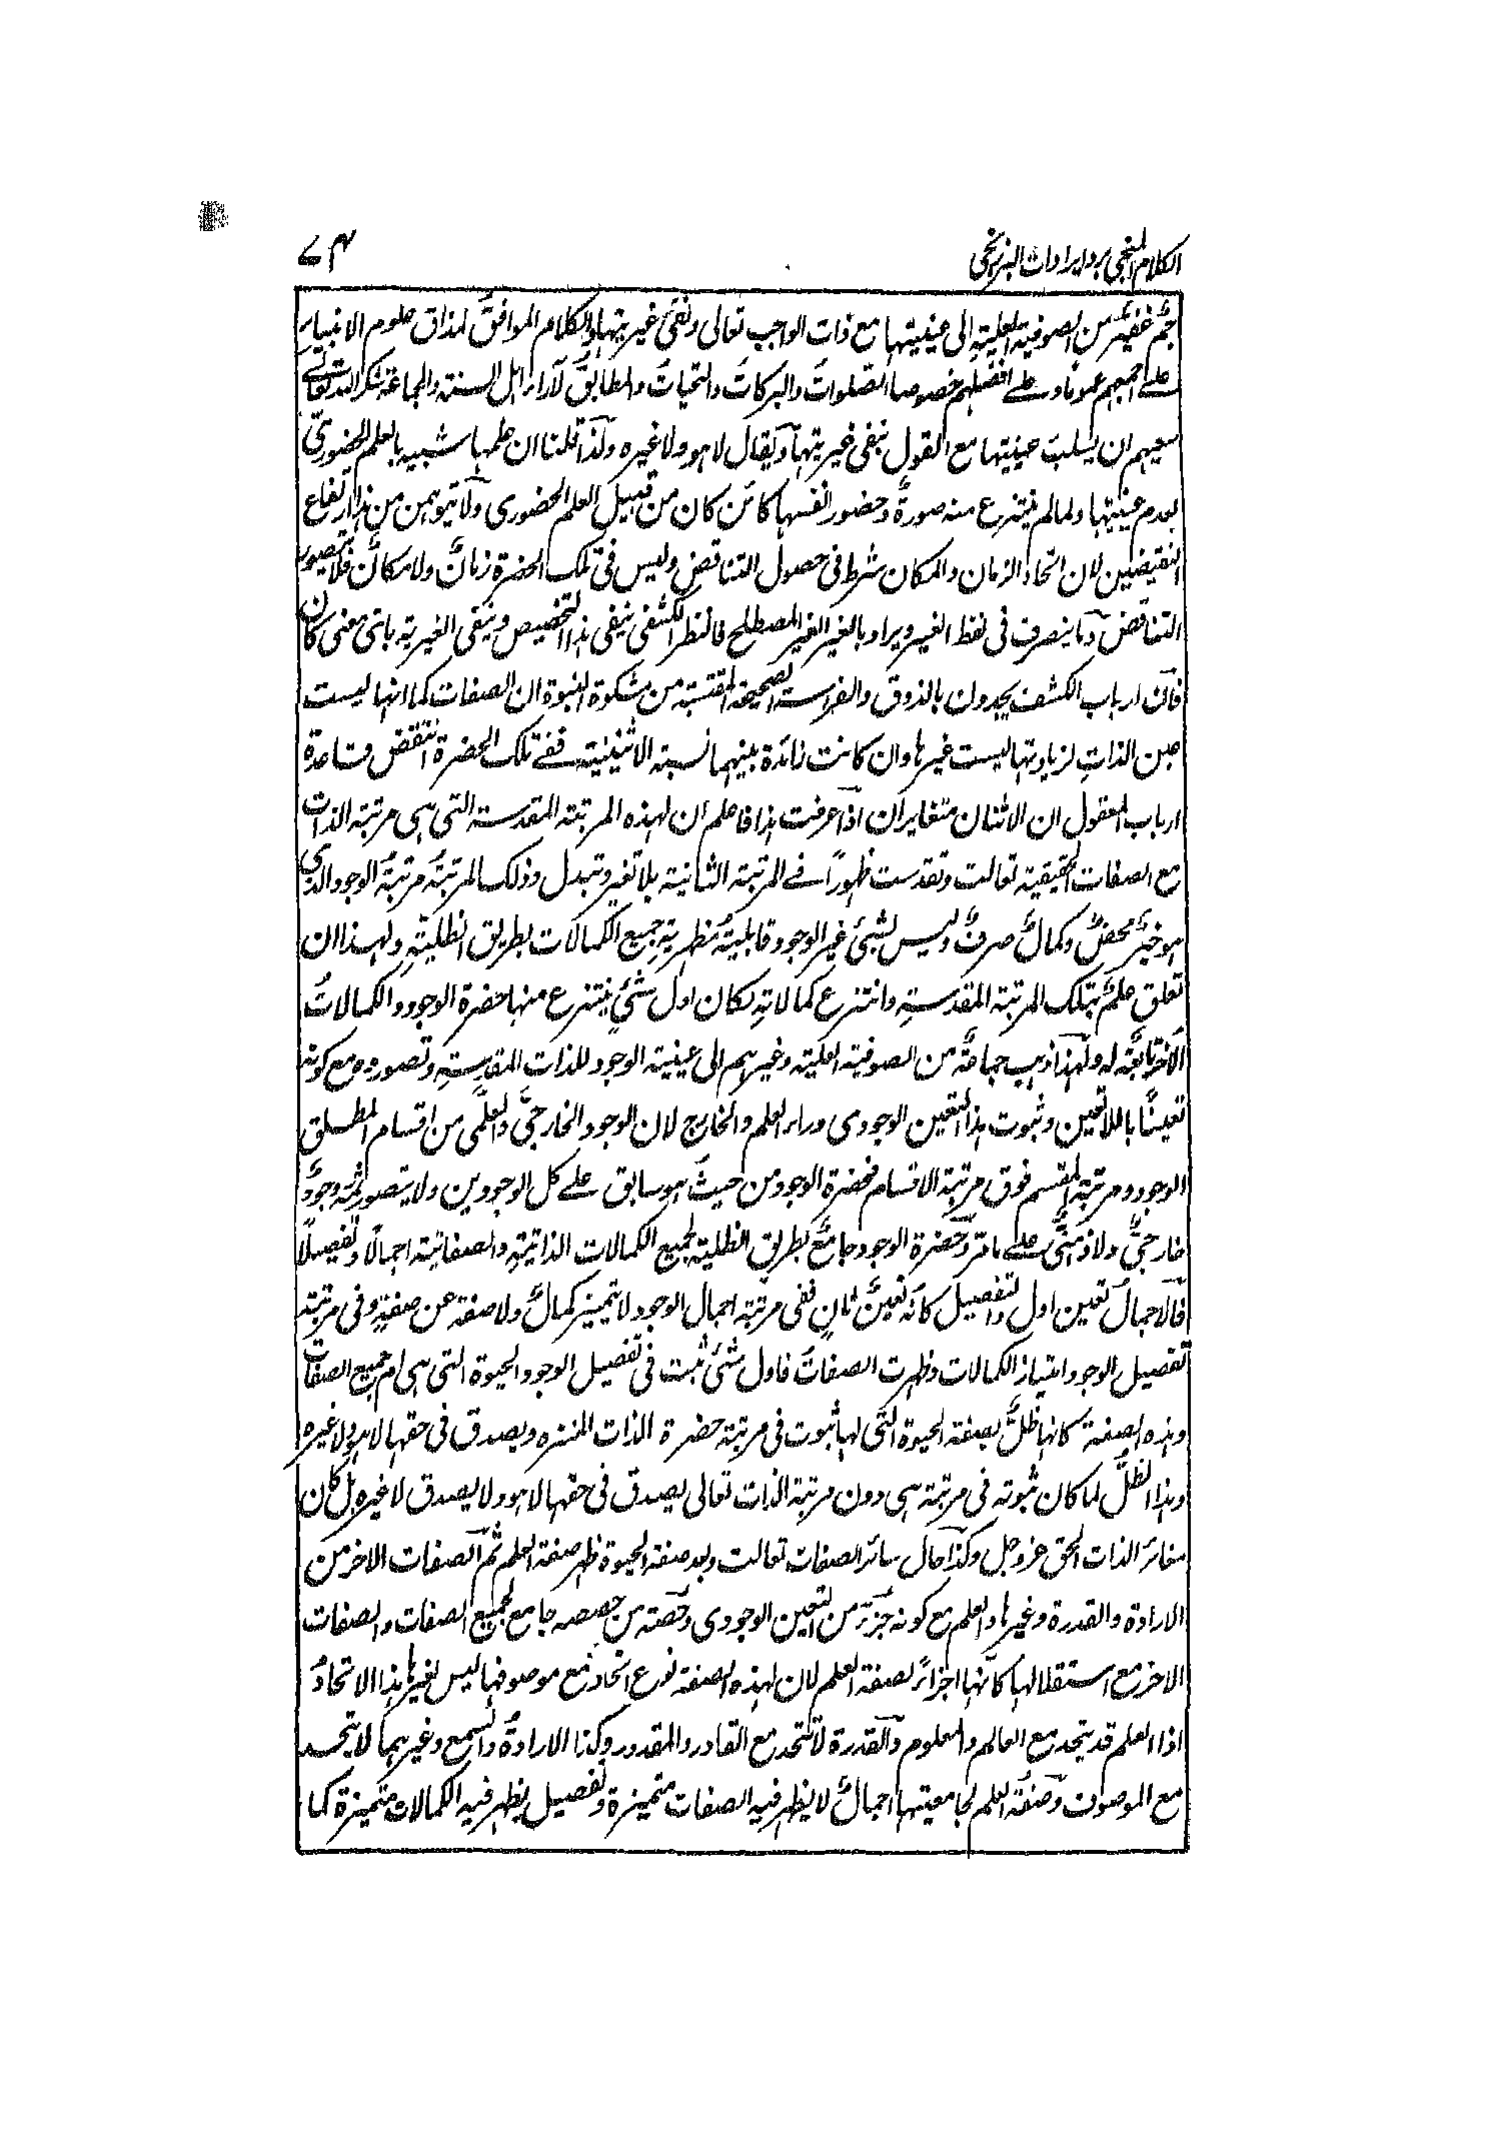 الكلام المنجي برد ايرادات البرزنجي
٧٤
جم غفير من الصوفية العلية الى عينيتها مع ذات الواجب تعالى ونفى غيريتها والكلام الموافق لمذاق علوم الانبياء
على جميعهم عموما وعلى افضلهم خصوصا الصلوات والبركات والتحيات والمطابق لآراء اهل السنة والجماعة شكر الله تعالى
سعيهم ان يسلب عينيتها مع القول بنفى غيريتها ويقال لا هو ولا غيره ولذا قلنا ان علمها شبيه بالعلم الحضورى
لعدم عينيتها ولما لم ينتزع منه صورة وحضور انفسها كائن كان من قبيل العلم الحضورى ولا يتوهمن من هذا ارتفاع
النقيضين لان اتحاد الزمان والمكان شرط فى حصول التناقض وليس فى تلك الحضرة زمان ولا مكان فلا يتصور
التناقض وما ينصرف فى لفظ الغير ويراد بالغير الغير المصطلح فالنظر الكشفى ينفى هذا التخصيص وينفى الغيرية باى معنى كان
فان ارباب الكشف يجدون بالذوق والفراسة الصحيحة المقتبسة من مشكوة النبوة ان الصفات كما انها ليست
عين الذات لزيادتها ليست غيرها وان كانت زائدة بينهما نسبة الاثنينية ففى تلك الحضرة انتقض قاعدة
ارباب المعقول ان الاثنان متغايران اذا عرفت هذا فاعلم ان لهذه المرتبة المقدسة التى هى مرتبة الذات
مع الصفات الحقيقية تعالت وتقدست ظهورا فى المرتبة الثانية بلا تغير وتبدل وذلك المرتبة مرتبة الوجود الذى
هو خير محض وكمال صرف وليس لشئ غير الوجود قابلية مظهرية جميع الكمالات بطريق الظلية ولهذا ان
تعلق علم بتلك المرتبة المقدسة وانتزع كمالاته لكان اول شئ ينتزع منها حضرة الوجود والكمالات
الاخر تابعة له ولهذا ذهب جماعة من الصوفية العلية وغيرهم الى عينية الوجود للذات المقدسة وتصوروه مع كونه
تعينا باللاتعين وثبوت هذا التعين الوجودى وراء العلم والخارج لان الوجود الخارجى والعلمى من اقسام المطلق
الوجود ومرتبة المقسم فوق مرتبة الاقسام فحضرة الوجود من حيث هو سابق على كل الوجودين ولا يتصور ثمه وجود
خارجى ولا ذهنى على ما مر وحضرة الوجود جامع بطريق الظلية لجميع الكمالات الذاتية والصفاتية اجمالا وتفصيلا
فالاجمال تعين اول والتفصيل كانه تعين ثان ففى مرتبة اجمال الوجود لا يتميز كمال ولا صفة عن صفة وفى مرتبة
تفصيل الوجود امتياز الكمالات وظهرت الصفات فاول شئ ثبت فى تفصيل الوجود الحيوة التى هى ام جميع الصفات
وهذه الصفة كانها ظل بصفة الحيوة التى لها ثبوت فى مرتبة حضرة الذات المنزه ويصدق فى حقها لا هو ولا غيره
وهذا الظل لما كان ثبوته فى مرتبة هى دون مرتبة الذات تعالى يصدق فى حقها لا هو ولا يصدق لا غيره بل كان
مغائر الذات الحق عز وجل وكذا حال سائر الصفات تعالت وبعد صفة الحيوة ظهر صفة العلم ثم الصفات الاخر من
الارادة والقدرة وغيرها والعلم مع كونه جزء من التعين الوجودى وحصة من حصصه جامع لجميع الصفات والصفات
الاخر مع استقلالها كانها اجزاء لصفة العلم لان لهذه الصفة نوع اتحاد مع موصوفها ليس لغيرها هذا الاتحاد
اذا العلم قد يتحد مع العالم والمعلوم والقدرة لا تتحد مع القادر والمقدور وكذا الارادة والسمع وغيرهما لا يتحد
مع الموصوف وصفة العلم لجامعيتها اجمال لا يظهر فيه الصفات متميزة وتفصيل يظهر فيه الكمالات متميزة كما